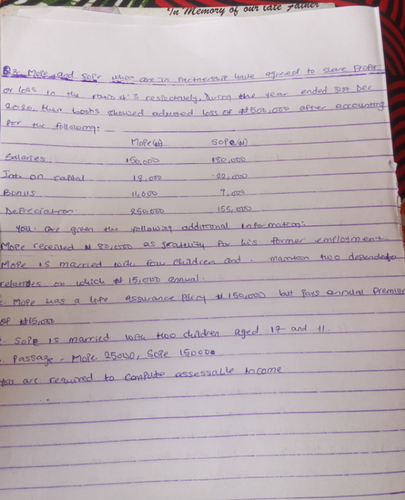 'In Memory of our late Father
Q3. Mope and Sope who are in Partnership have agreed to share Profit
or loss in the ratio 4:3 respectively, During the year ended 31st Dec
2020, their books showed adjusted loss of ₦500,000 after accounting
for the following:
Mope(₦) Sope(₦)
Salaries 150,000 180,000
Int. on capital 18,000 22,000
Bonus 11,000 9,000
Depreciation 250,000 155,000
You are given the following additional information:
Mope received ₦ 80,000 as gratuity for his former employment
Mope is married with four children and maintain two dependent
relatives on which ₦ 15,000 annual.
Mope has a life Assurance Policy ₦ 150,000 but pays annual Premium
of ₦15,000
Sope is married with two children aged 17 and 11.
Passage - Mope 25000, Sope 150000
You are required to compute assessable Income